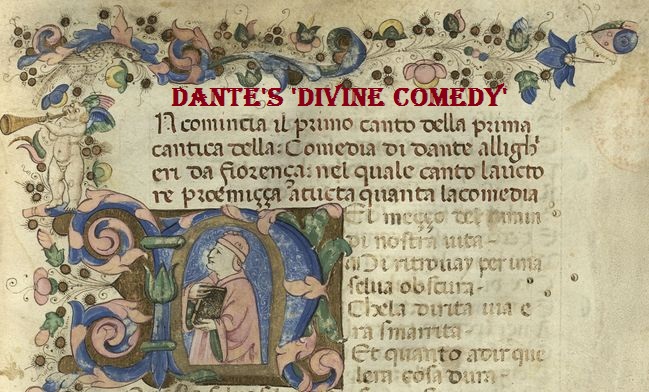 DANTE'S 'DIVINE COMEDY'
INcomincia il primo canto della prima
cantica della: Comedia di dante alligh
eri da fiorença: nel quale canto laucto
re proemiçça atucta quanta lacomedia
NEl meçço del camin
di nostra vita-
Mi ritrouay per una
selua obscura-
Chela dirita uia e
ra smarrita-
Et quanto adir que
lera cosa dura-